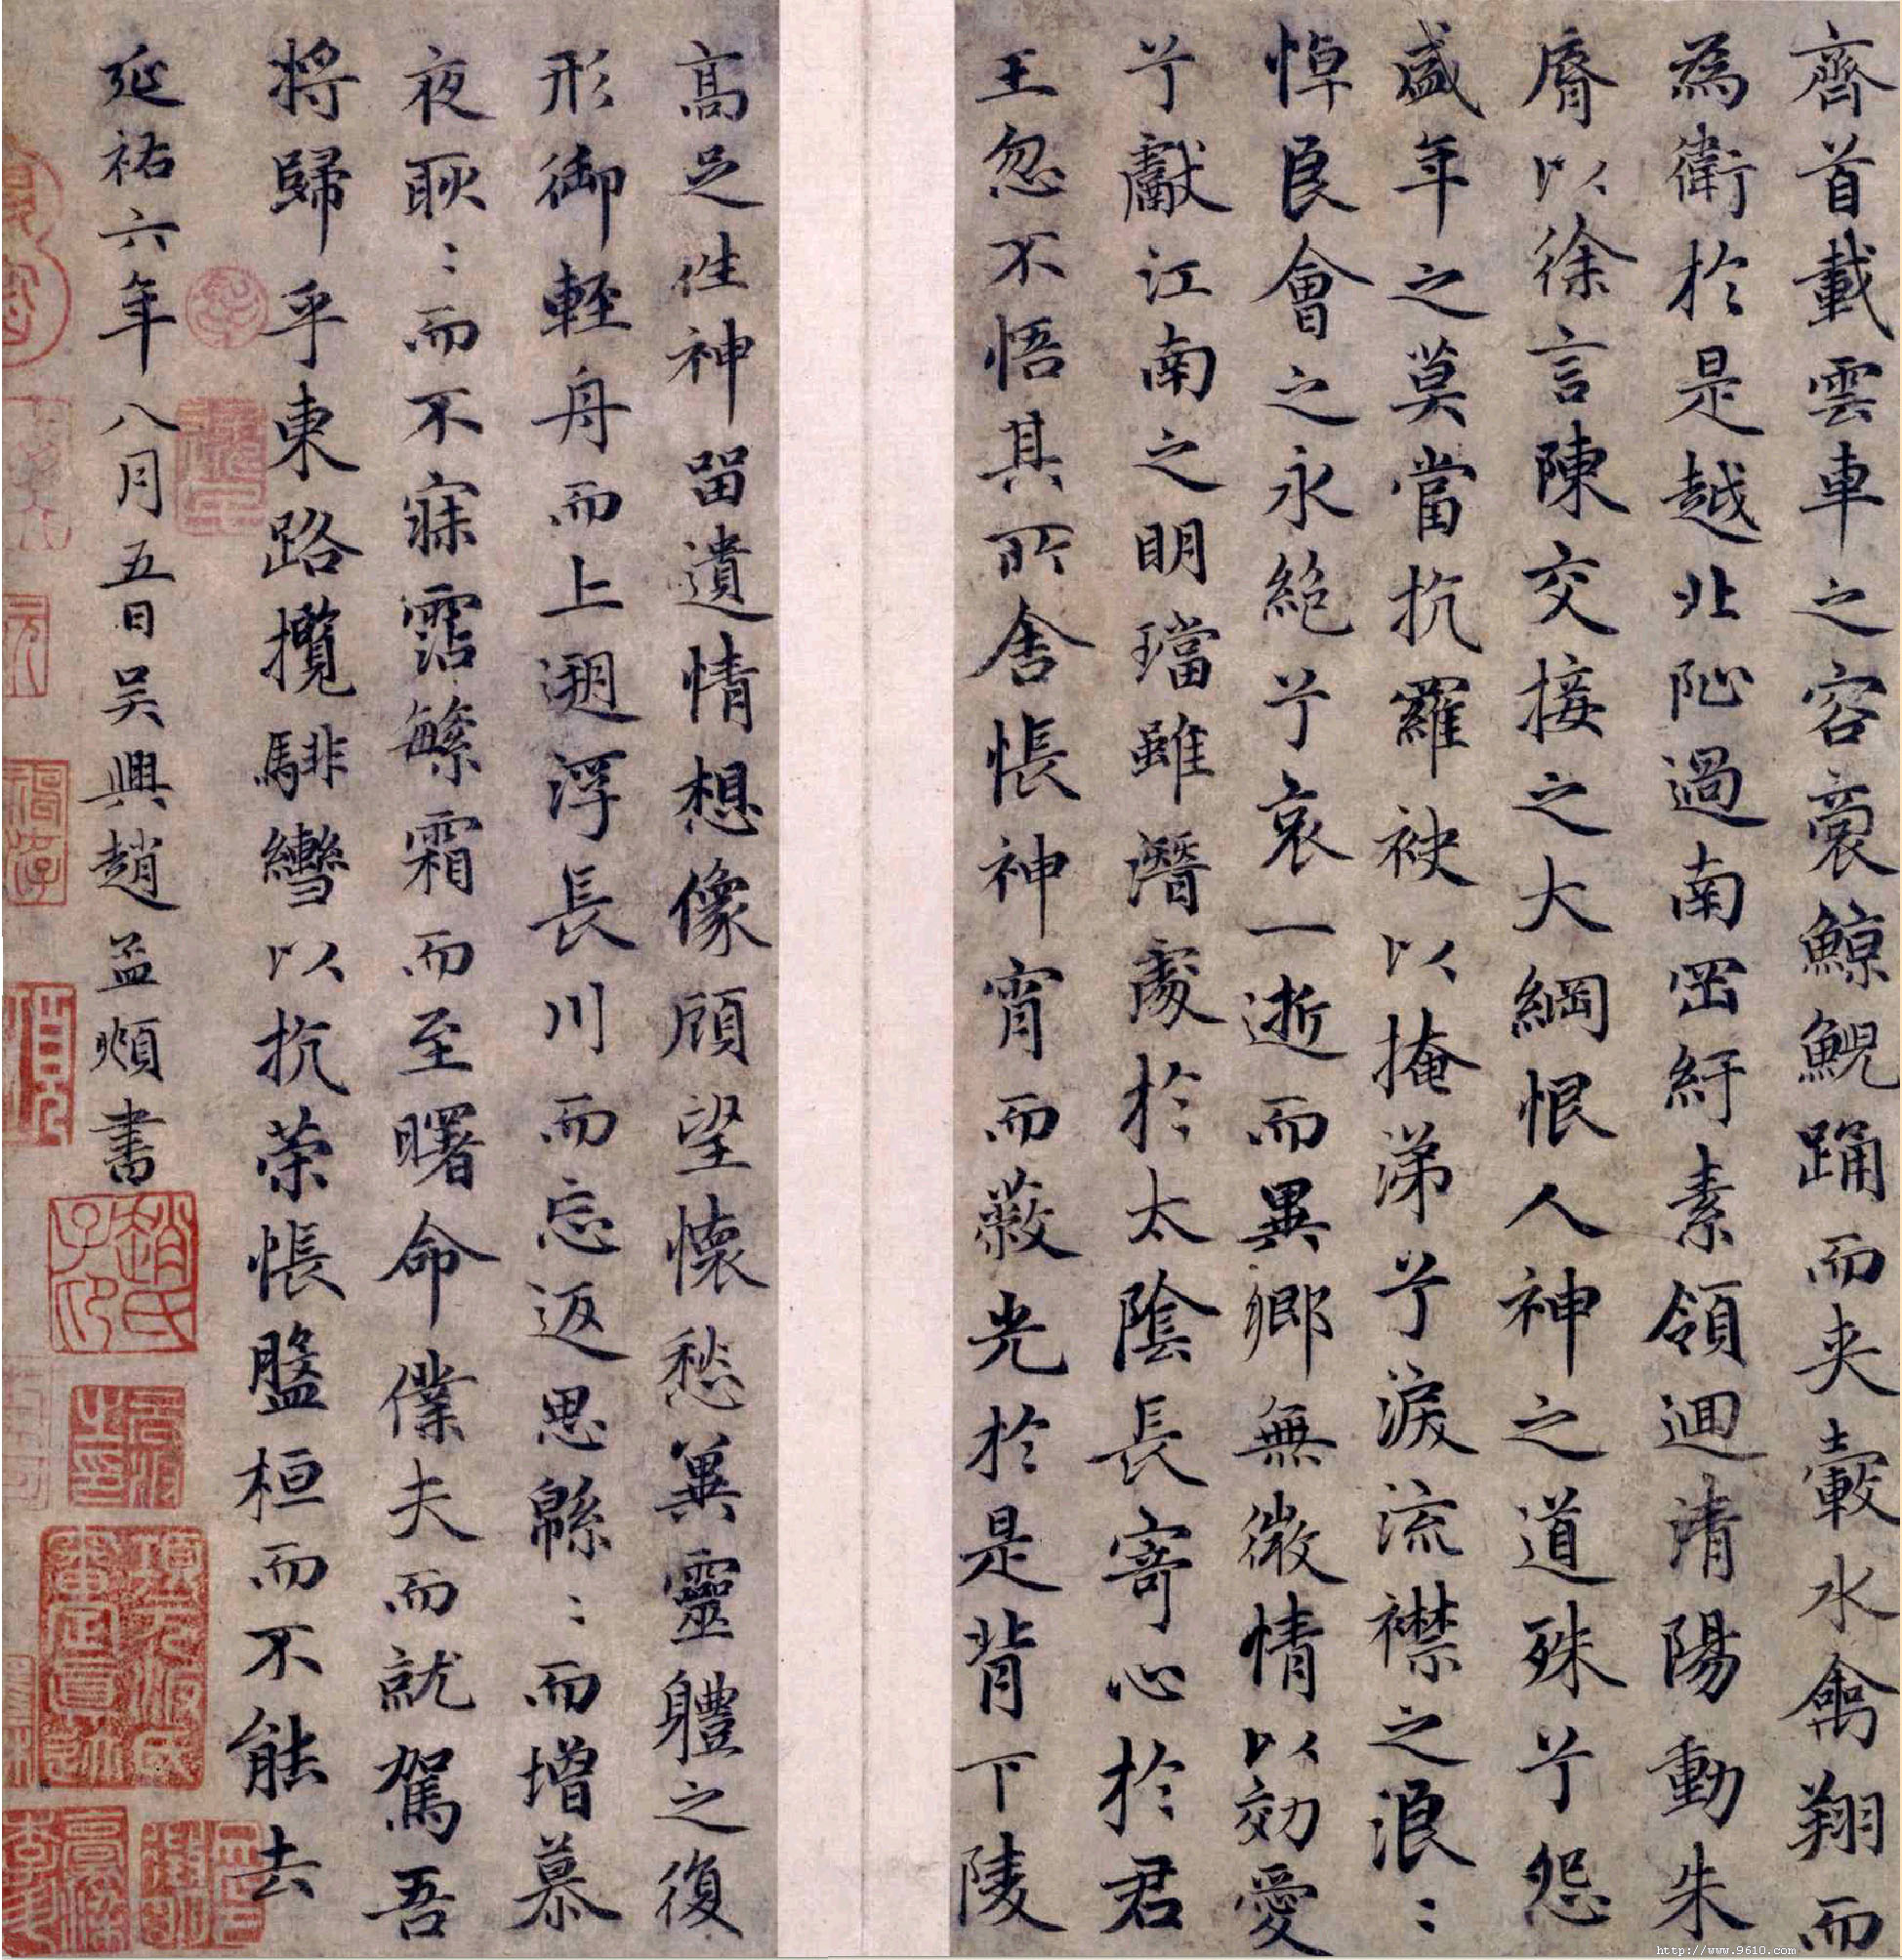 齊首載雲車之容裔鯨鯢踊而夾轂水禽翔而
為衛於是越北沚過南岡紆素領迴清陽動朱
脣以徐言陳交接之大綱恨人神之道殊兮怨
盛年之莫當抗羅袂以掩涕兮淚流襟之浪〻
悼良會之永絕兮哀一逝而異鄉無微情以効愛
兮獻江南之明璫雖潛處於太陰長寄心於君
王忽不悟其所舍悵神宵而蔽光於是背下陵
高足性神留遺情想像顧望懷愁冀靈體之復
形御輕舟而上遡浮長川而忘返思緜〻而增慕
夜耿〻而不寐霑繁霜而至曙命僕夫而就駕吾
將歸乎東路攬騑轡以抗策悵盤桓而不能去
延祐六年八月五日吳興趙孟頫書
趙氏子昂
項元汴氏審定真跡
http://www.9610.com